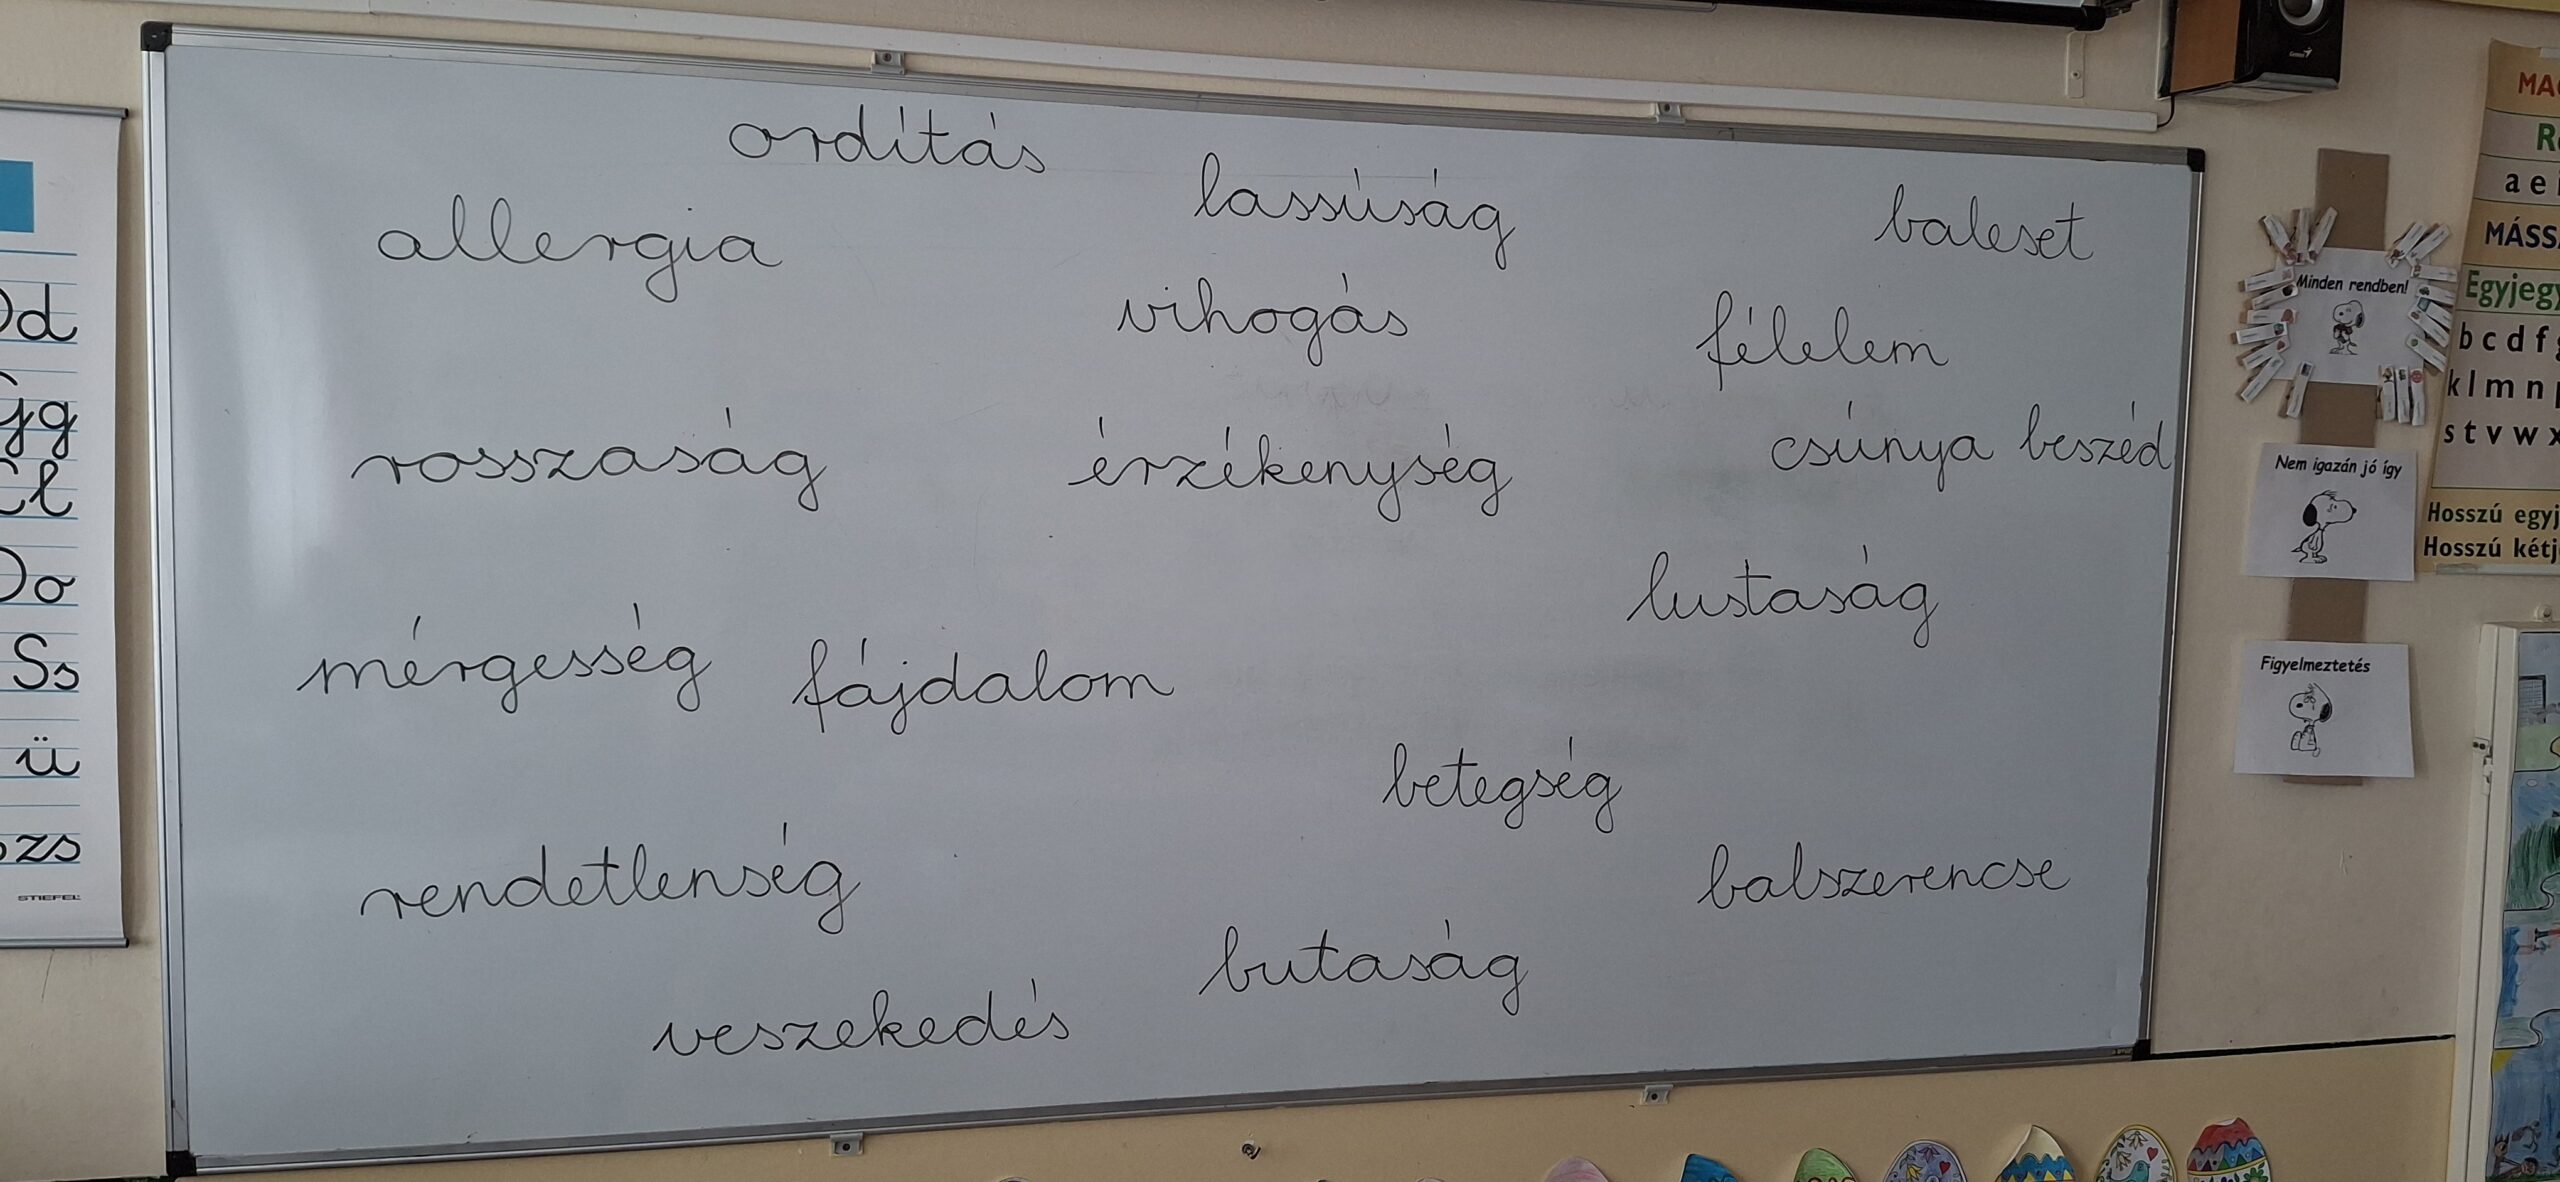 ordítás
lassúság
baleset
allergia
vihogás
félelem
rosszaság
érzékenység
csúnya beszéd
lustaság
mérgesség
fájdalom
betegség
rendetlenség
balszerencse
butaság
veszekedés
d
g
l
o
Ss
ü
zs
STIEFEL
Genius
Minden rendben!
Nem igazán jó így
Figyelmeztetés
a e
Egyjegy
b c d f
k l m n
s t v w x
Hosszú egyj
Hosszú kétj